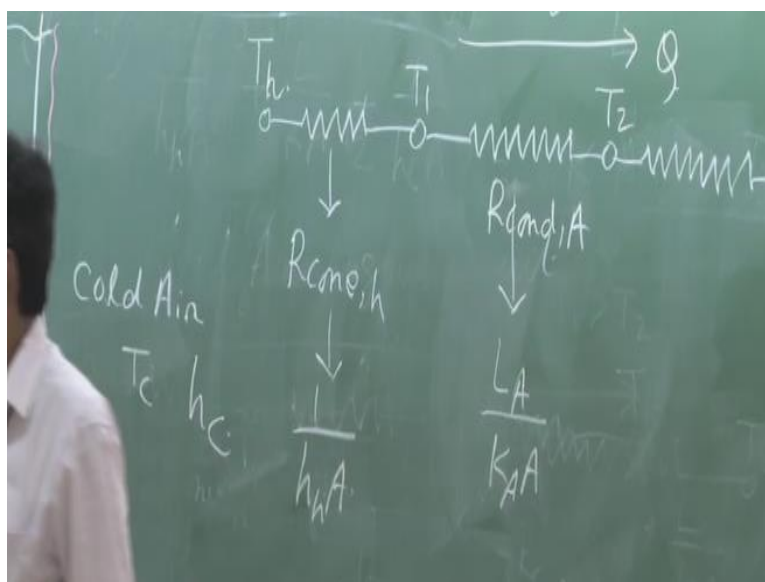 Q
T_h T_1 T_2
R_conv,h R_cond,A
Cold Air
T_C h_C
1/(h_h A) L_A/(K_A A)